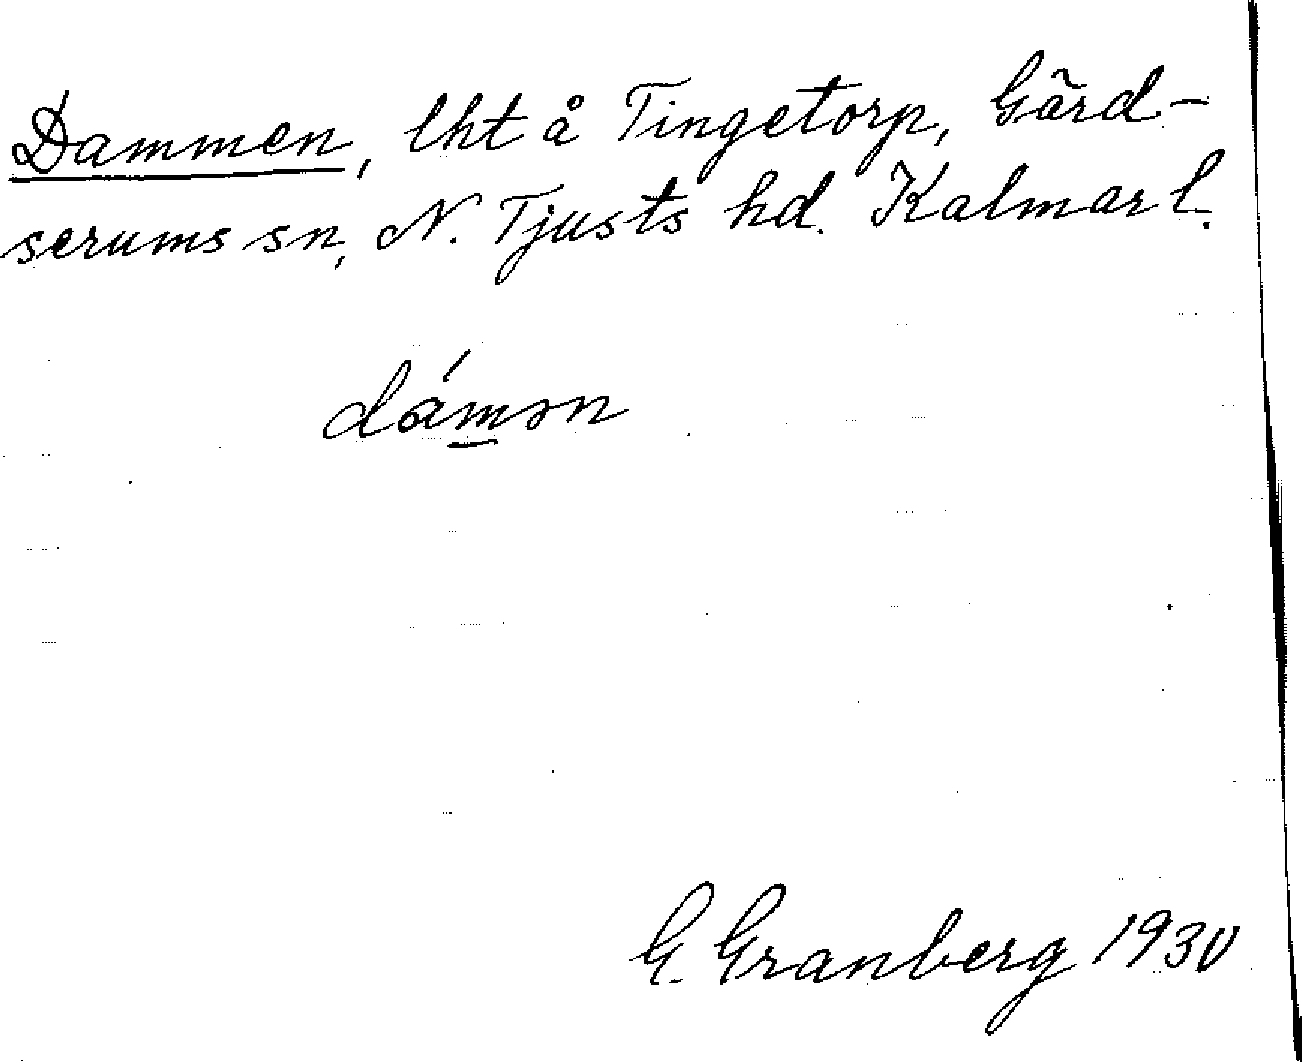 Dammen, lht å Tingetorp, Gärd-
serums sn, N. Tjusts hd. Kalmar l.
dámən
G. Granberg 1930